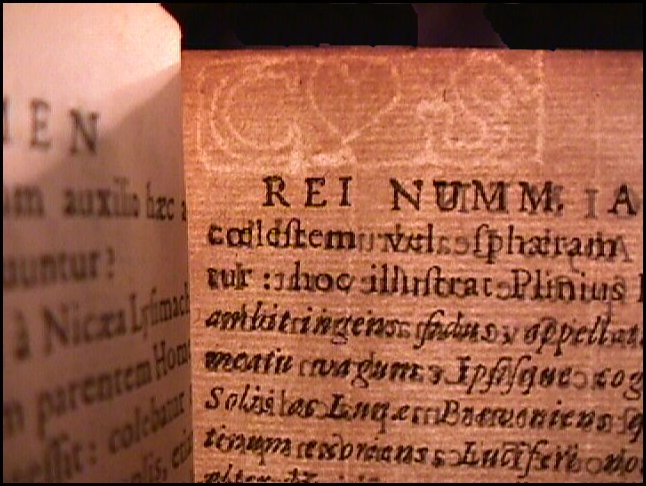 IEN
um auxilio hæc a
uuntur?
à Nicæa Lysimach
m parentem Home
essit: colebatur
C S
REI NUMM. A
cœlestem vel sphæram
tur : hoc illustrat Plinius
ambit ingens sidus appellat
meatu vagum Ipsisque cog
Solis ac
tinum exoriens Luciferi no